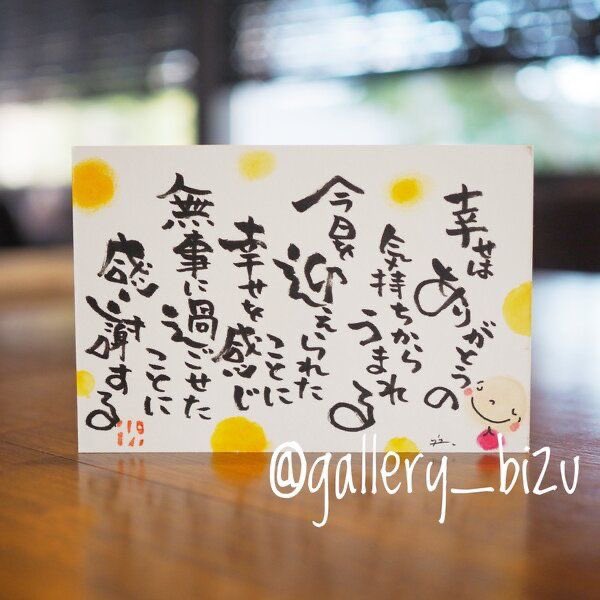 幸せは
ありがとうの
気持ちから
うまれる
今日を
迎えられた
ことに
幸せを感じ
無事に過ごせた
ことに
感謝する
@gallery_bizu